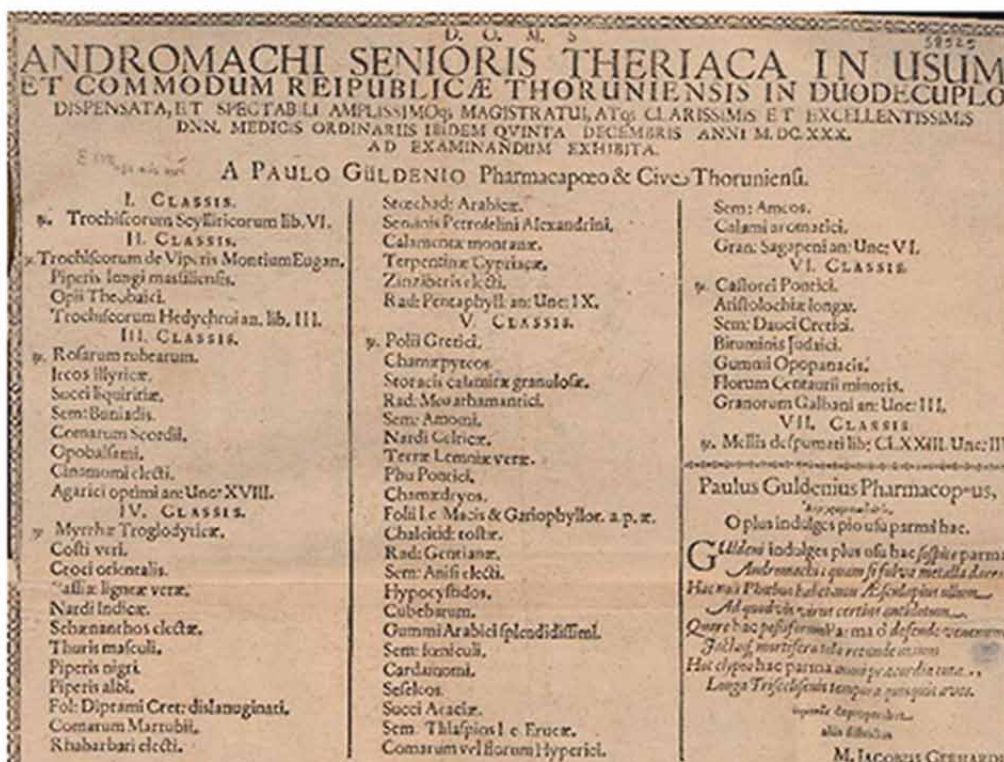 D. O. M. S
58525
ANDROMACHI SENIORIS THERIACA IN USUM
ET COMMODUM REIPUBLICÆ THORUNIENSIS IN DUODECUPLO
DISPENSATA, ET SPECTABILI AMPLISSIMOq; MAGISTRATUI, ATq; CLARISSIMIS ET EXCELLENTISSIMIS
DNN. MEDICIS ORDINARIIS IBIDEM QVINTA DECEMBRIS ANNI M. DC. XXX.
AD EXAMINANDUM EXHIBITA.
A PAULO GÜLDENIO Pharmacapœo & Cive Thoruniensi.
I. CLASSIS.
Trochiscorum Scylliticorum lib. VI.
II. CLASSIS.
Trochiscorum de Viperis Montium Eugan.
Piperis longi massiliensis.
Opii Thebaici.
Trochiscorum Hedychroi an. lib. III.
III. CLASSIS.
Rosarum rubearum.
Ireos illyricæ.
Succi liquiritiæ.
Sem: Buniadis.
Comarum Scordii.
Opobalsami.
Cinamomi electi.
Agarici optimi an: Unc: XVIII.
IV. CLASSIS.
Myrrhæ Troglodyticæ.
Costi veri.
Croci orientalis.
Cassiæ ligneæ veræ.
Nardi Indicæ.
Schænanthos electæ.
Thuris masculi.
Piperis nigri.
Piperis albi.
Fol: Diptami Cret: dislanuginati.
Comarum Marrubii.
Rhabarbari electi.
Stœchad: Arabicæ.
Seminis Petroselini Alexandrini.
Calamentæ montanæ.
Terpentinæ Cypriacæ.
Zinziberis electi.
Rad: Pentaphyll: an: Unc: IX.
V. CLASSIS.
Polii Cretici.
Chamæpyteos.
Storacis calamitæ granulosæ.
Rad: Meu athamantici.
Sem: Amomi.
Nardi Celticæ.
Terræ Lemniæ veræ.
Phu Pontici.
Chamædryos.
Folii I. e. Macis & Gariophyllor. a. p. æ.
Chalcitid: tostæ.
Rad: Gentianæ.
Sem: Anisi electi.
Hypocystidos.
Cubebarum.
Gummi Arabici splendidissimi.
Sem: fœniculi.
Cardamomi.
Seseleos.
Succi Acaciæ.
Sem: Thlaspios I. e. Erucæ.
Comarum vel florum Hyperici.
Sem: Ameos.
Calami aromatici.
Gran: Sagapeni an: Unc: VI.
VI. CLASSIS.
Castorei Pontici.
Aristolochiæ longæ.
Sem: Dauci Cretici.
Bituminis Judaici.
Gummi Opopanacis.
Florum Centaurii minoris.
Granorum Galbani an: Unc: III.
VII. CLASSIS
Mellis despumati lib: CLXXIII. Unc: II
Paulus Guldenius Pharmacopœus,
O plus indulges pio usu parmi hac.
Guldeni indulges plus usu hac sospite parma
Andromachi: quam si fulva metalla dares
Ad quodvis virus certius antidotum
Hoc clypeo hac parma
tempora
M. IACOBUS GERHARDI